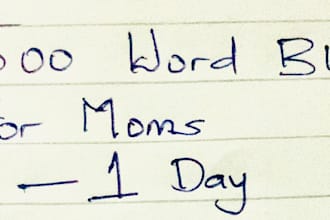 000 Word Bl
or Moms
— 1 Day